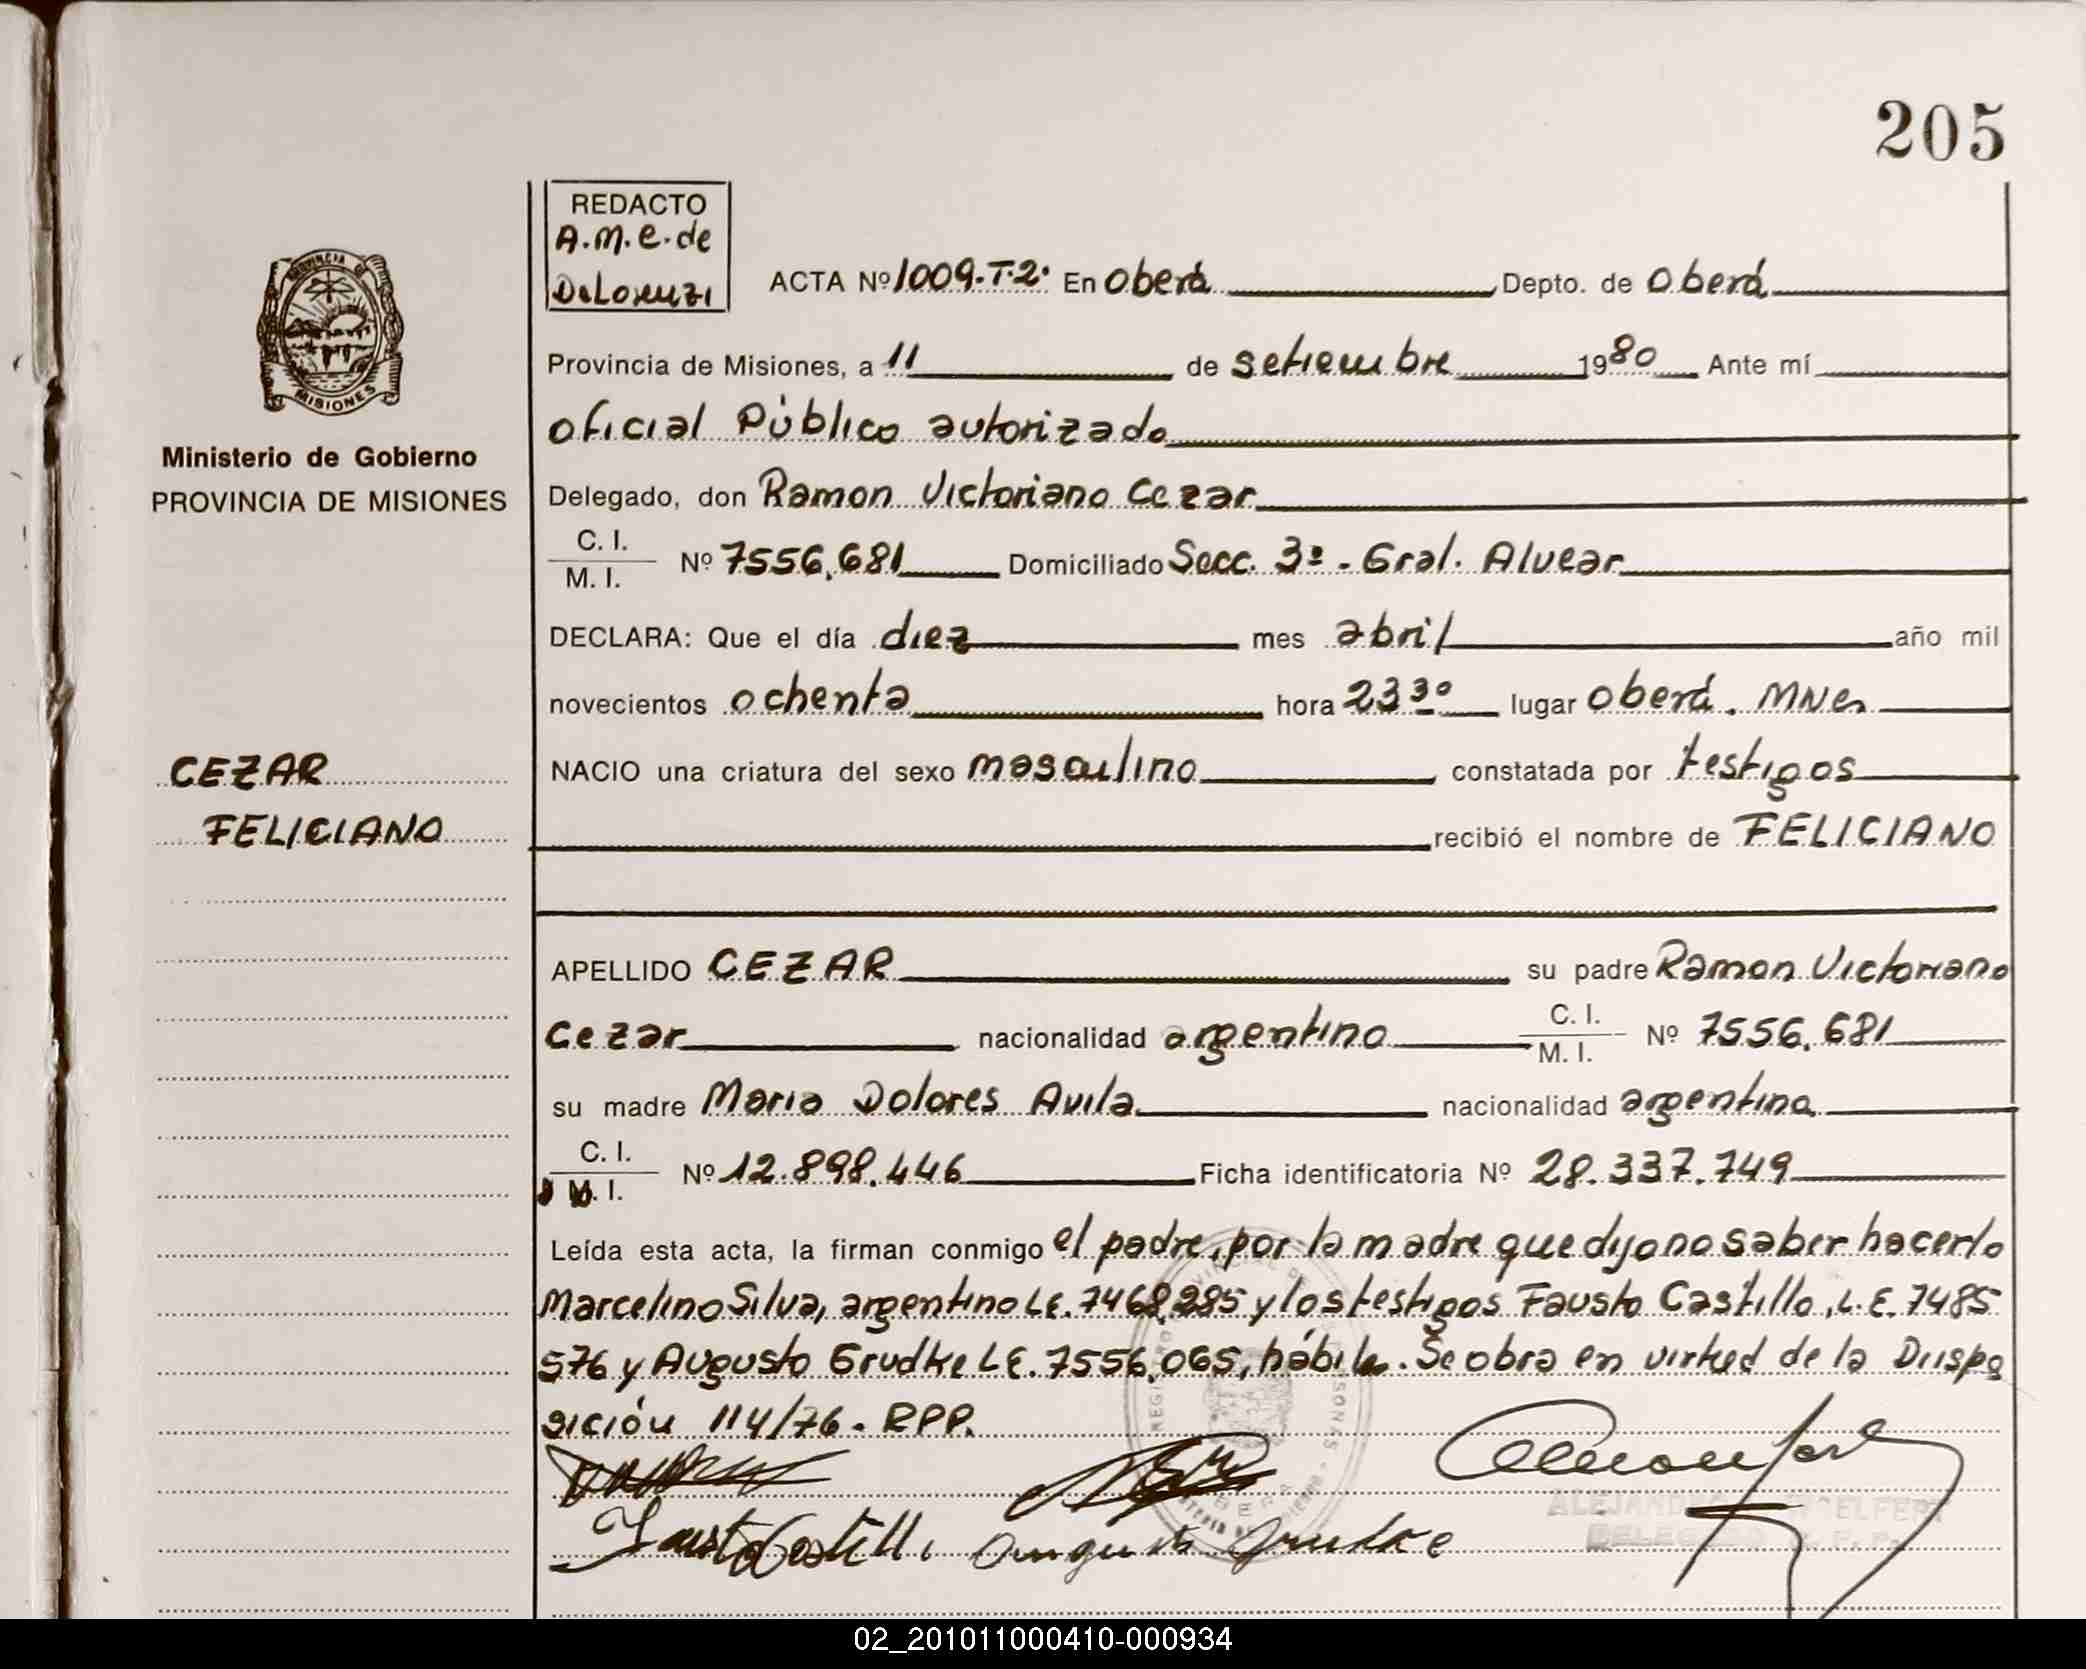 205
REDACTO
A.M.E. de
DeLorenzi
ACTA Nº 1009.T.2º En Oberá Depto. de Oberá
Provincia de Misiones, a 11 de setiembre 1980 Ante mí
oficial Público autorizado
Ministerio de Gobierno
PROVINCIA DE MISIONES
Delegado, don Ramon Victoriano Cezar
C. I.
M. I. Nº 7556.681 Domiciliado Secc. 3º - Gral. Alvear
DECLARA: Que el día diez mes abril año mil
novecientos ochenta hora 23 30 lugar Oberá. Mnes
CEZAR
FELICIANO
NACIO una criatura del sexo masculino constatada por testigos
recibió el nombre de FELICIANO
APELLIDO CEZAR su padre Ramon Victoriano
Cezar nacionalidad argentino C. I. M. I. Nº 7556.681
su madre Maria Dolores Avila nacionalidad argentina
C. I.
M. I. Nº 12.898.446 Ficha identificatoria Nº 28.337.749
Leída esta acta, la firman conmigo el padre, por la madre que dijo no saber hacerlo
Marcelino Silva, argentino LE. 7468.285 y los testigos Fausto Castillo, L.E. 7485
576 y Augusto Grudke LE. 7556.065, hábiles. Se obra en virtud de la Dispo
sición 114/76. RPP.
Fausto Castillo Augusto Grudke
02_201011000410-000934